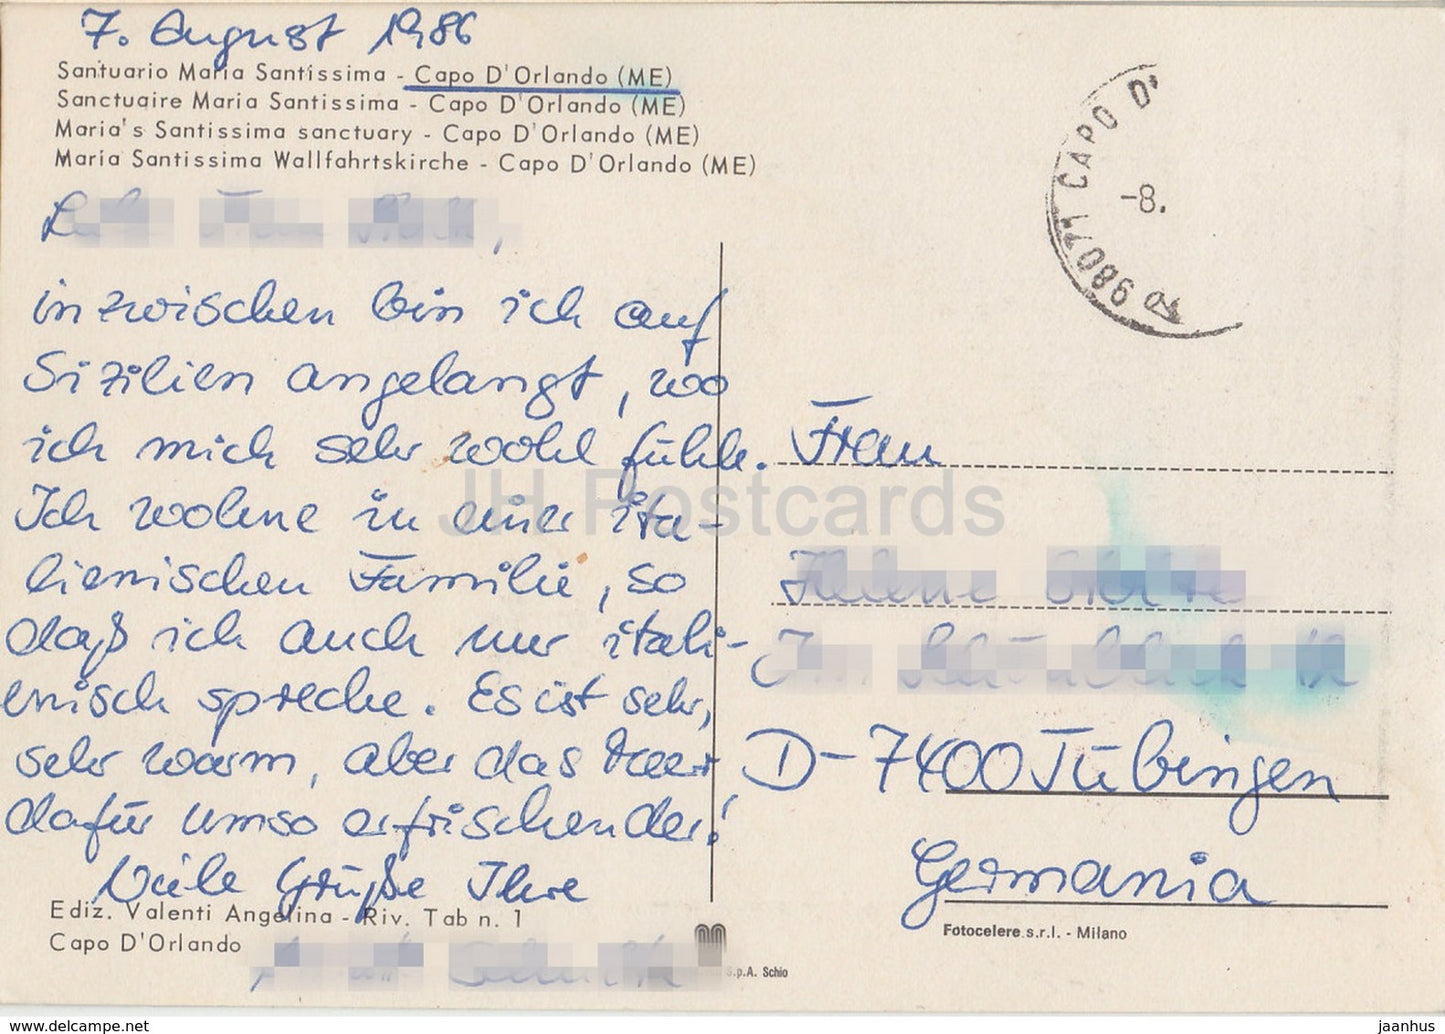 7. August 1986
Santuario Maria Santissima - Capo D'Orlando (ME)
Sanctuaire Maria Santissima - Capo D'Orlando (ME)
Maria's Santissima sanctuary - Capo D'Orlando (ME)
Maria Santissima Wallfahrtskirche - Capo D'Orlando (ME)
98071 CAPO D'
-8.
inzwischen bin ich auf
Sizilien angelangt, wo
ich mich sehr wohl fühle.
Ich wohne in einer ita-
lienischen Familie, so
daß ich auch nur itali-
enisch spreche. Es ist sehr,
sehr warm, aber das Meer
dafür umso erfrischender!
Viele Grüße Ihre
Ediz. Valenti Angelina - Riv. Tab n. 1
Capo D'Orlando
Frau
D-7400 Tübingen
Germania
Fotocelere s.r.l. - Milano
S.p.A. Schio
JH Postcards
www.delcampe.net
jaanhus